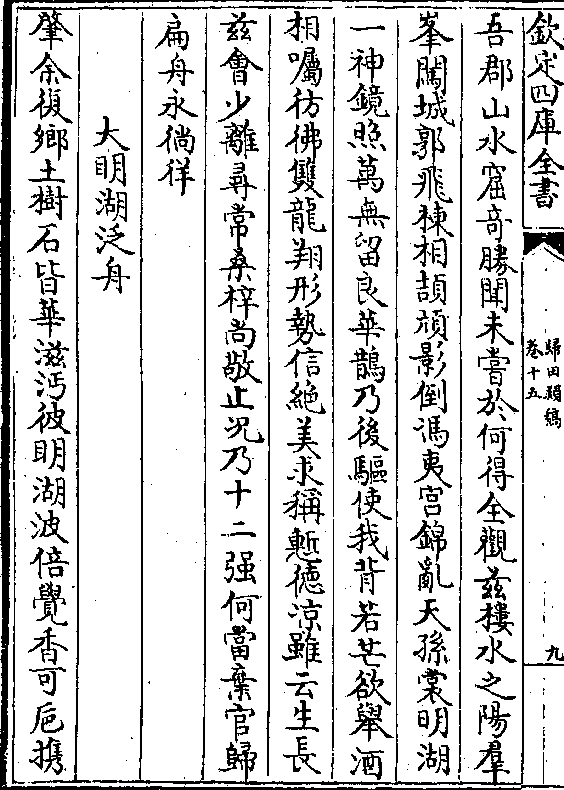 欽定四庫全書
歸田類稿
卷十五
九
吾郡山水窟奇勝聞未嘗於何得全觀兹樓水之陽羣
峯闖城郭飛棟相頡頏影倒馮夷宫錦亂天孫裳明湖
一神鏡照萬無留良華鵲乃後驅使我背若芒欲舉酒
相囑彷彿雙龍翔形勢信絶美求稱慙徳涼雖云生長
兹會少離尋常桑梓尚敬止况乃十二强何當棄官歸
扁舟永徜徉
大明湖泛舟
肇余復鄉土樹石皆華滋沔彼明湖波倍覺香可巵攜